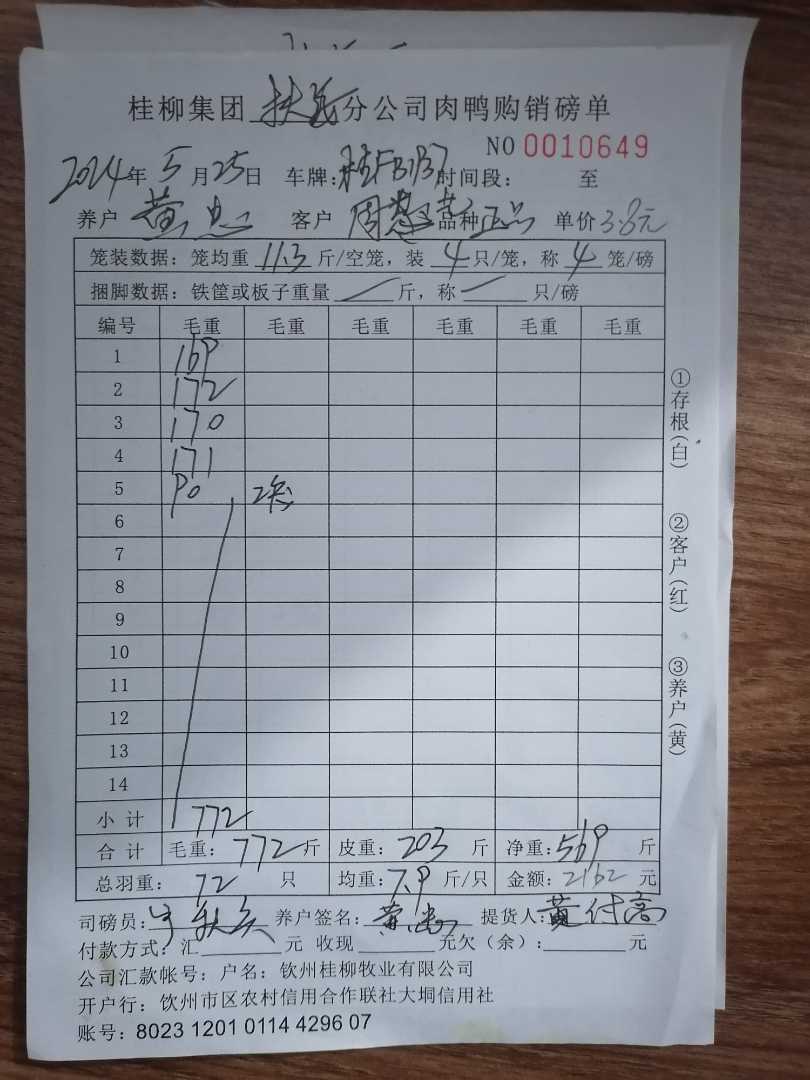 桂柳集团 分公司肉鸭购销磅单
NO 0010649
2024年5月25日 车牌:桂FB1B7 时间段: 至
养户 黄忠 客户 周慧 品种 正品 单价 3.8元
笼装数据:笼均重 11.3 斤/空笼,装 4 只/笼,称 4 笼/磅
捆脚数据:铁筐或板子重量 斤,称 只/磅
编号 毛重 毛重 毛重 毛重 毛重 毛重
1 169
2 172
3 170
4 171
5 90 2笼
6
7
8
9
10
11
12
13
14
小计 772
合计 毛重:772斤 皮重:203斤 净重:569斤
总羽重:72只 均重:7.9斤/只 金额:2162元
司磅员: 养户签名:黄忠 提货人:黄付高
付款方式:汇 元 收现 元欠(余): 元
公司汇款帐号:户名:钦州桂柳牧业有限公司
开户行:饮州市区农村信用合作联社大垌信用社
账号:8023 1201 0114 4296 07
①存根(白)
②客户(红)
③养户(黄)